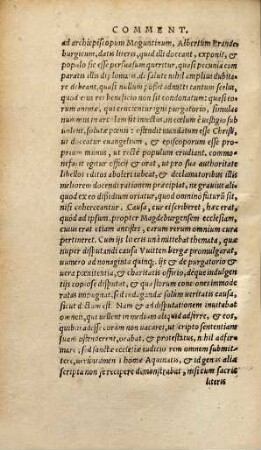 COMMENT.
ad archiepiscopum Moguntinum, Albertum Brande
burgicum, datis literis, quid illi doceant, exponit, &
populo sic esse persuasum queritur, quasi pecunia com
paratis illis diplomatis de salute nihil amplius dubita
re debeant, quasi nullum possit admitti tantum scelus,
quod eius rei beneficio non sit condonatum: quasi item
animæ, quæ crucientur igni purgatorio, simulac
nummus in cistam iniectus est in cœlum è vestigio sub
uolent, solutæ pœnis: ostendit mandatum esse Christi,
ut doceatur euangelium, & episcoporum esse pro
prium munus, ut rectè populum erudiant. commo
nefacit igitur officij & orat, ut pro sua authoritate
libellos editos abolere iubeat, & declamatoribus illis
meliorem docendi rationem præcipiat, ne grauius ali
quid ex eo dissidio oriatur, quod omnino futurum, ni
si coherceantur. Causa, cur ei scriberet, hæc erat,
quòd ad ipsum, propter Magdeburgensem ecclesiam,
cuius erat etiam antistes, earum rerum omnium cura
pertineret. Cum ijs literis unà mittebat themata, quæ
nuper disputandi causa Vuittenbergæ promulgarat,
numero ad nonaginta quinque, ijs & de purgatorio & de
uera pœnitentia, & charitatis officio, deque indulgen
tijs copiosè disputat, & quæstorum conciones immode
ratas impugnat, sed indagandæ solum veritatis causa,
sicut dictum est. Nam & ad disputationem inuitabat
omneis, qui uellent in medium aliquid adferre, & eos,
quibus adesse coràm non uacaret, ut scripto sententiam
suam ostenderent, orabat, & protestatus, nihil adfir
mare, sed sanctæ ecclesiæ iudicio rem omnem submit
tere, ueruntamen Thomæ Aquinatis, & id genus aliæ
scripta non se recipere demonstrabat, nisi cum sacris
literis